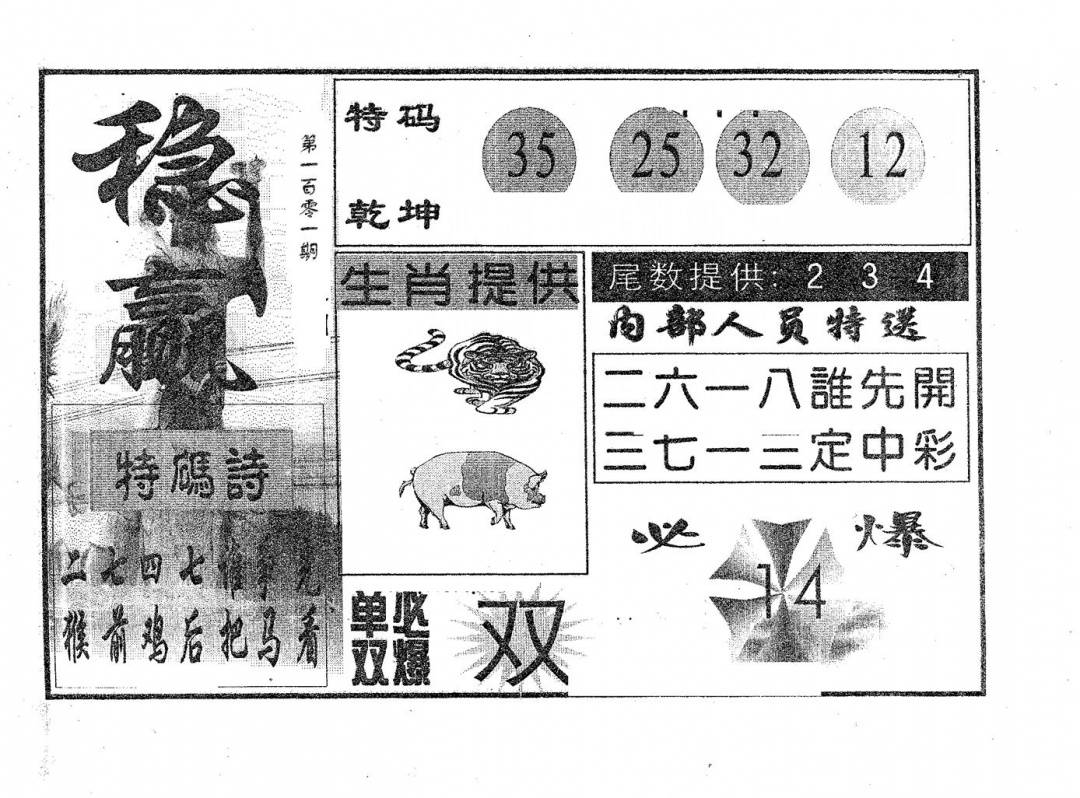 稳赢
第一百零一期
特码
乾坤
35 25 32 12
生肖提供
尾数提供: 2 3 4
内部人员特送
二六一八誰先開
三七一三定中彩
特碼詩
二七四七谁争先
猴前鸡后把马看
单双
必爆
双
必爆
14